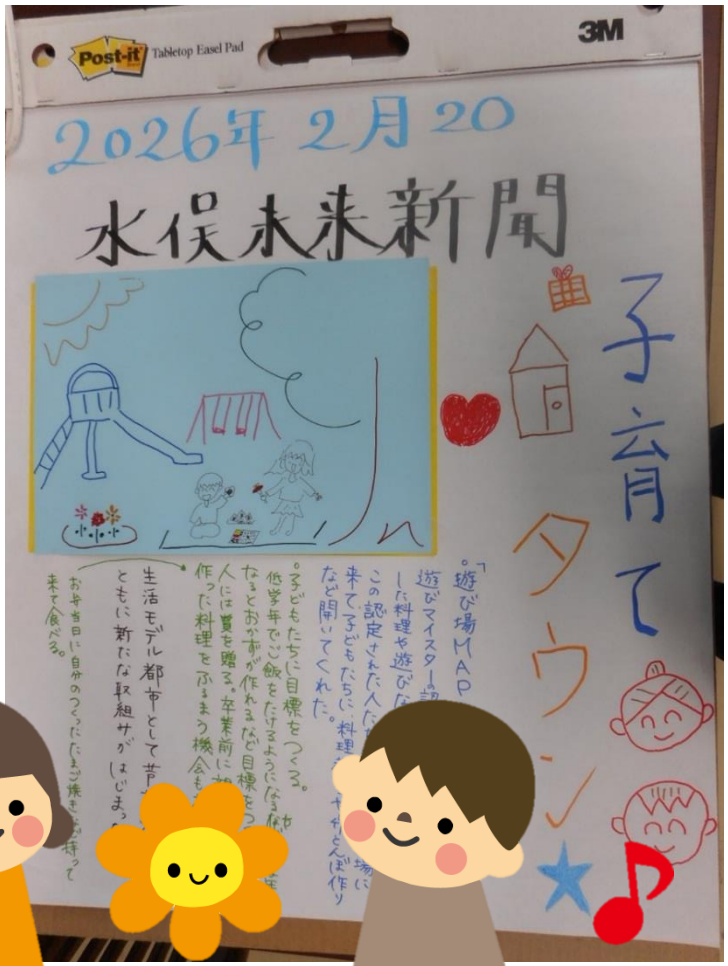 Post-it
Tabletop Easel Pad
3M
2026年2月20
水俣未来新聞
子育て
タウン
「
。遊び場MAP
遊びマイスターの
した料理や遊び
この認定された人た
来て、子どもたちに、料理
など開いてくれた。
。子どもたちに目標をつくる。
低学年でご飯をたけるようになる
なるとおかずが作れるなど目標を
人には賞を贈る。卒業前に
作った料理をふるまう機会も
生活モデル都市として昔
ともに新たな取組サがはじまっ
お弁当日に自分のつくったたまご焼き
持って
来て食べる。